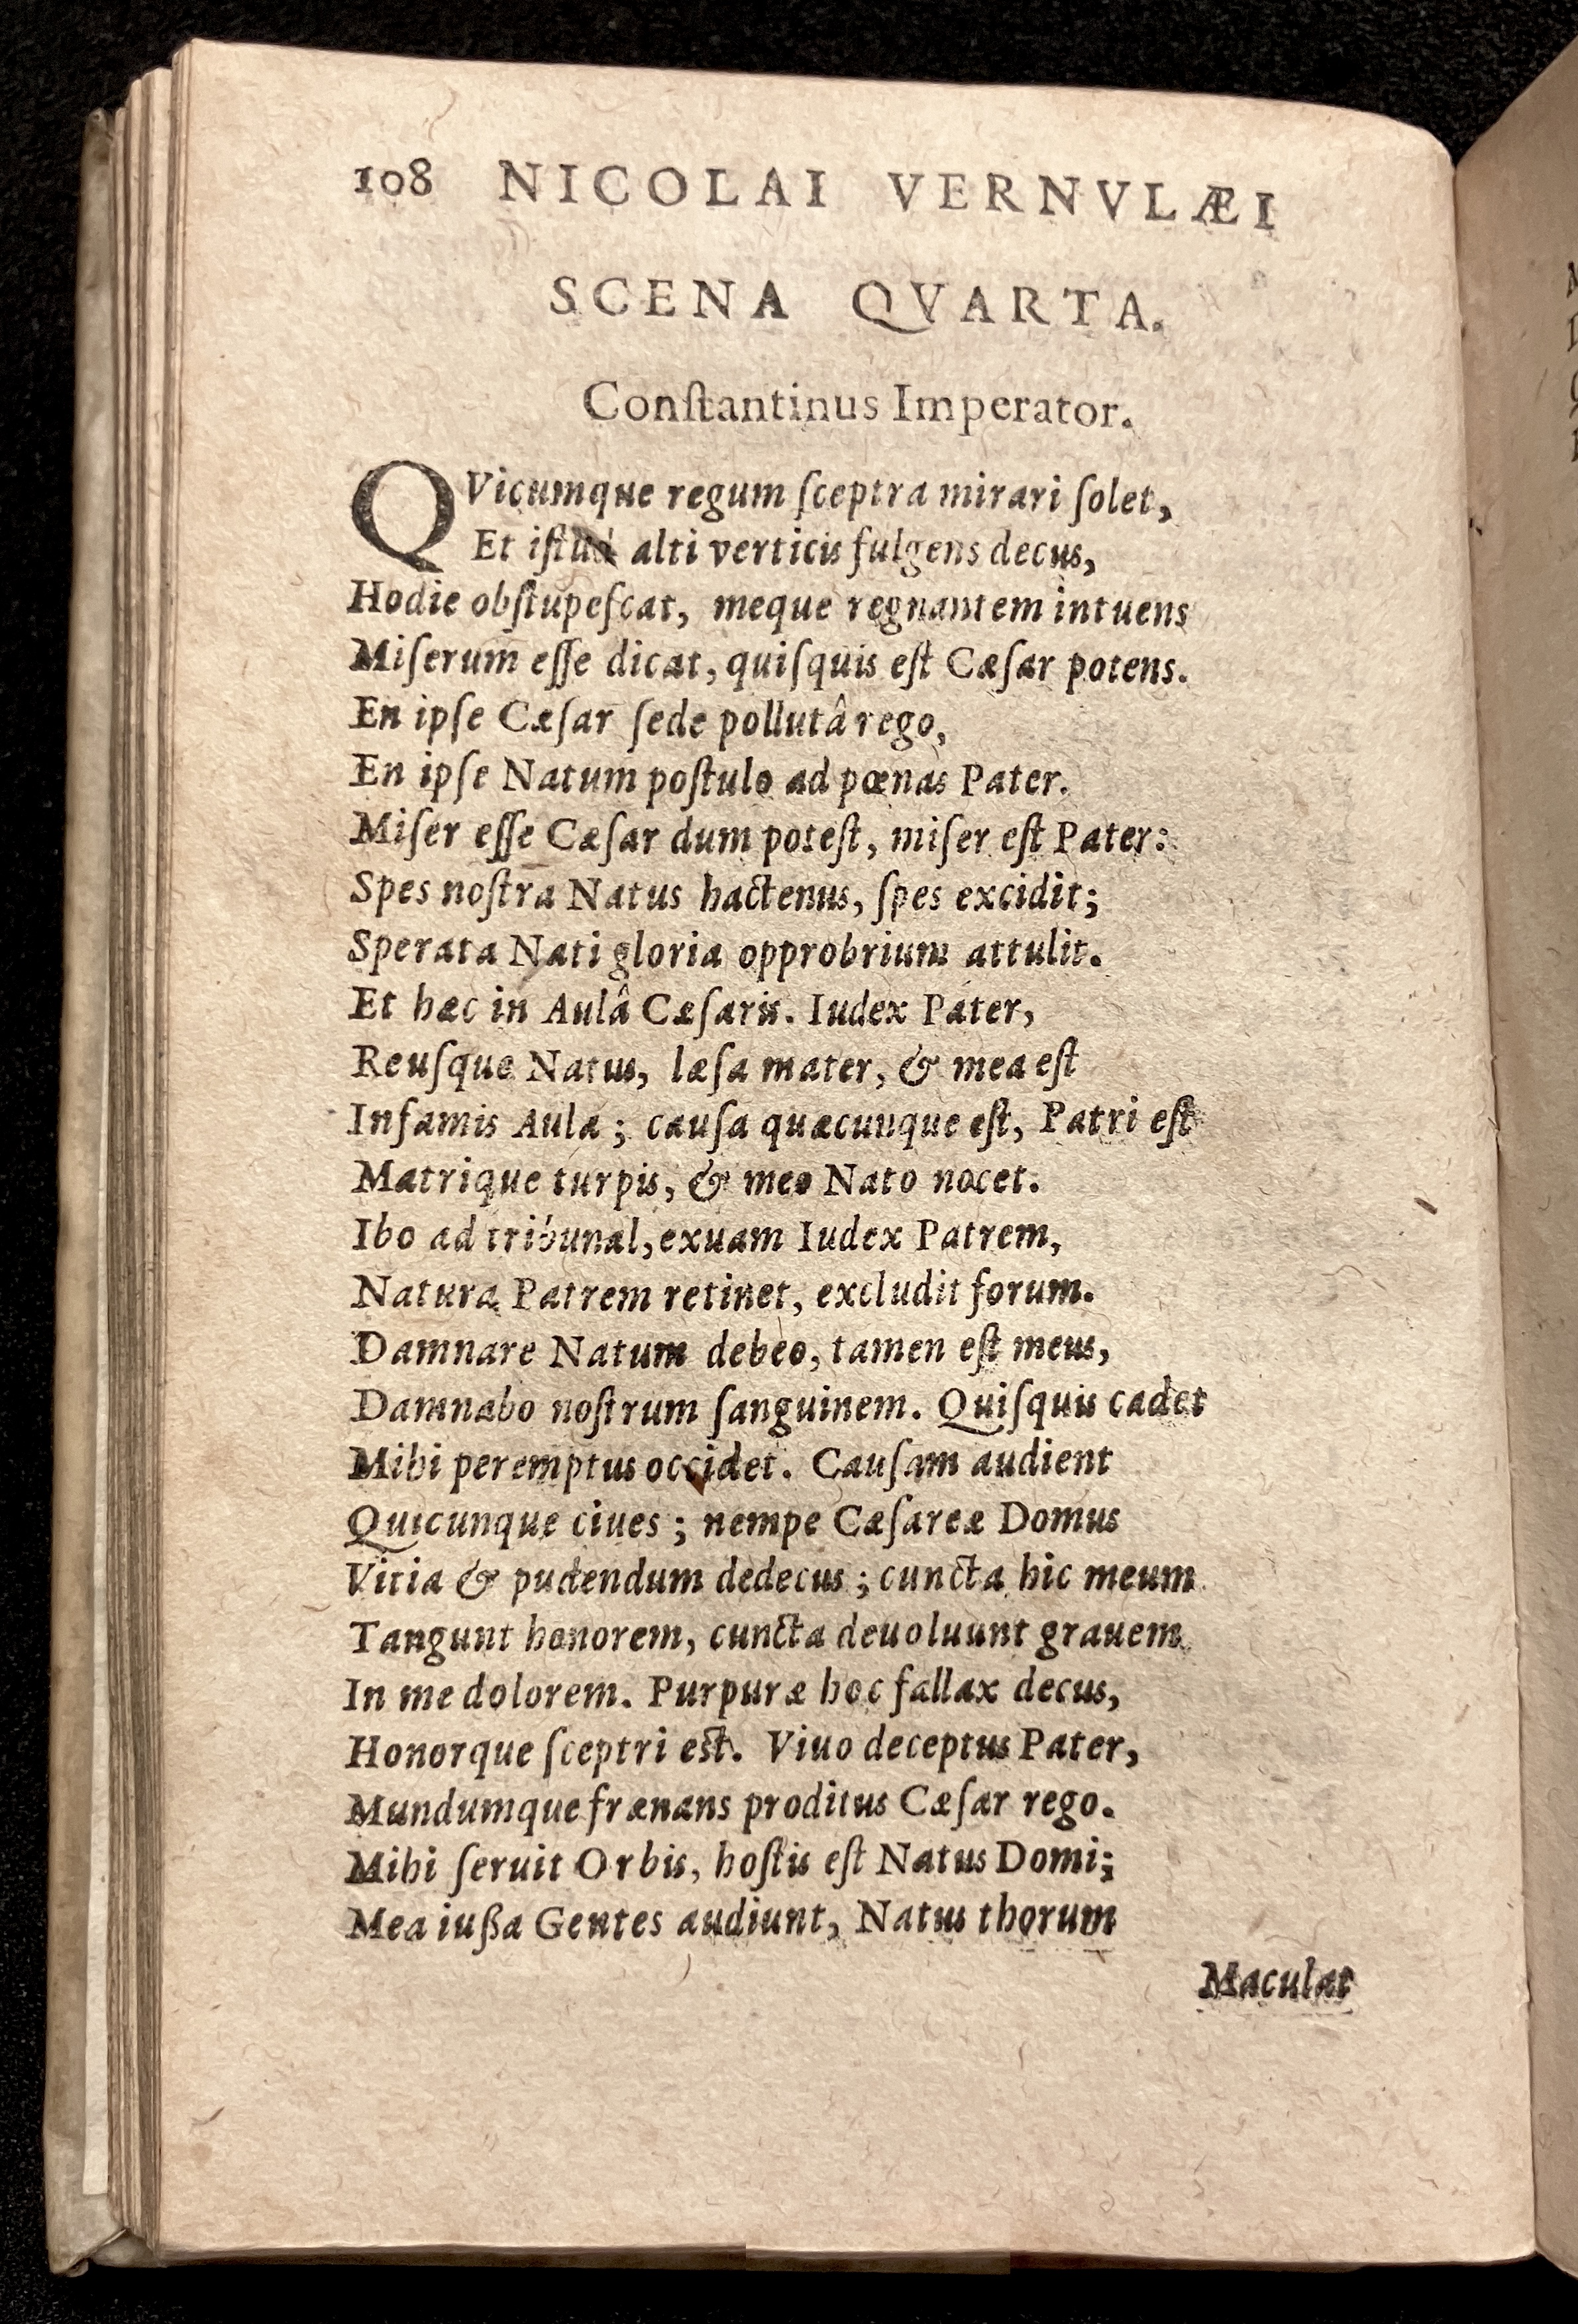 108 NICOLAI VERNVLÆI
SCENA QVARTA.
Conſtantinus Imperator.
QVicumque regum ſceptra mirari ſolet,
Et iſtud alti verticis fulgens decus,
Hodie obſtupeſcat, meque regnantem intuens
Miſerum eſſe dicat, quiſquis eſt Cæſar potens.
En ipſe Cæſar ſede pollutâ rego,
En ipſe Natum poſtulo ad pœnas Pater.
Miſer eſſe Cæſar dum poteſt, miſer eſt Pater:
Spes noſtra Natus hactenus, ſpes excidit;
Sperata Nati gloria opprobrium attulit.
Et hæc in Aulâ Cæſaris. Iudex Pater,
Reuſque Natus, læſa mater, & mea eſt
Infamis Aula; cauſa quæcunque eſt, Patri eſt
Matrique turpis, & meo Nato nocet.
Ibo ad tribunal, exuam Iudex Patrem,
Natura Patrem retinet, excludit forum.
Damnare Natum debeo, tamen eſt meus,
Damnabo noſtrum ſanguinem. Quiſquis cadet
Mihi peremptus occidet. Cauſam audient
Quicunque ciues; nempe Cæſareæ Domus
Vitia & pudendum dedecus; cuncta hic meum
Tangunt honorem, cuncta deuoluunt grauem
In me dolorem. Purpuræ hoc fallax decus,
Honorque ſceptri eſt. Viuo deceptus Pater,
Mundumque frænans proditus Cæſar rego.
Mihi ſeruit Orbis, hoſtis eſt Natus Domi;
Mea iußa Gentes audiunt, Natus thorum
Maculat